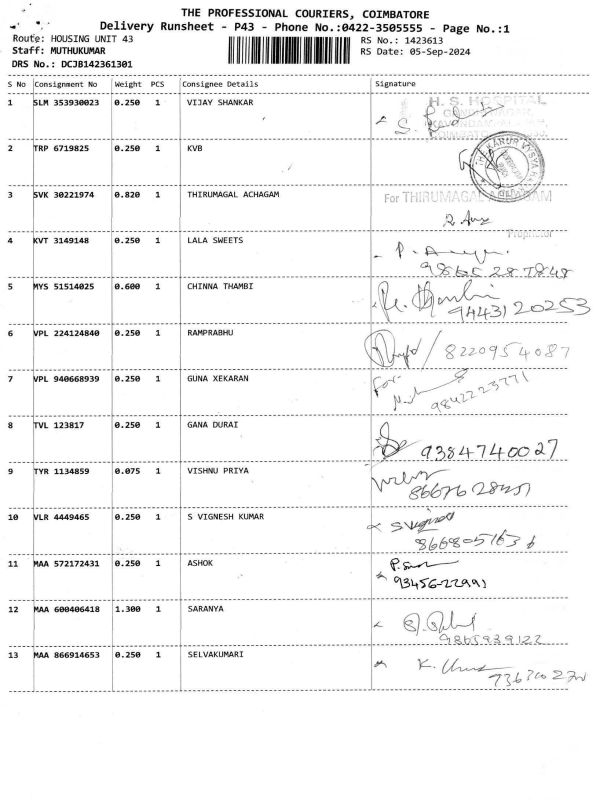 THE PROFESSIONAL COURIERS, COIMBATORE
Delivery Runsheet - P43 - Phone No.:0422-3505555 - Page No.:1
Route: HOUSING UNIT 43 RS No.: 1423613
Staff: MUTHUKUMAR RS Date: 05-Sep-2024
DRS No.: DCJB142361301
S No Consignment No Weight PCS Consignee Details Signature
1 SLM 353930023 0.250 1 VIJAY SHANKAR H. S. HOSPITAL
2 TRP 6719825 0.250 1 KVB
3 SVK 30221974 0.820 1 THIRUMAGAL ACHAGAM For THIRUMAGAL ACHAGAM
Proprietor
4 KVT 3149148 0.250 1 LALA SWEETS
9865287848
5 MYS 51514025 0.600 1 CHINNA THAMBI
9443120253
6 VPL 224124840 0.250 1 RAMPRABHU 8220954087
7 VPL 940668939 0.250 1 GUNA XEKARAN For
9842223771
8 TVL 123817 0.250 1 GANA DURAI
9384740027
9 TYR 1134859 0.075 1 VISHNU PRIYA
10 VLR 4449465 0.250 1 S VIGNESH KUMAR S Vignesh
11 MAA 572172431 0.250 1 ASHOK
93456-22991
12 MAA 600406418 1.300 1 SARANYA
9865939122
13 MAA 866914653 0.250 1 SELVAKUMARI